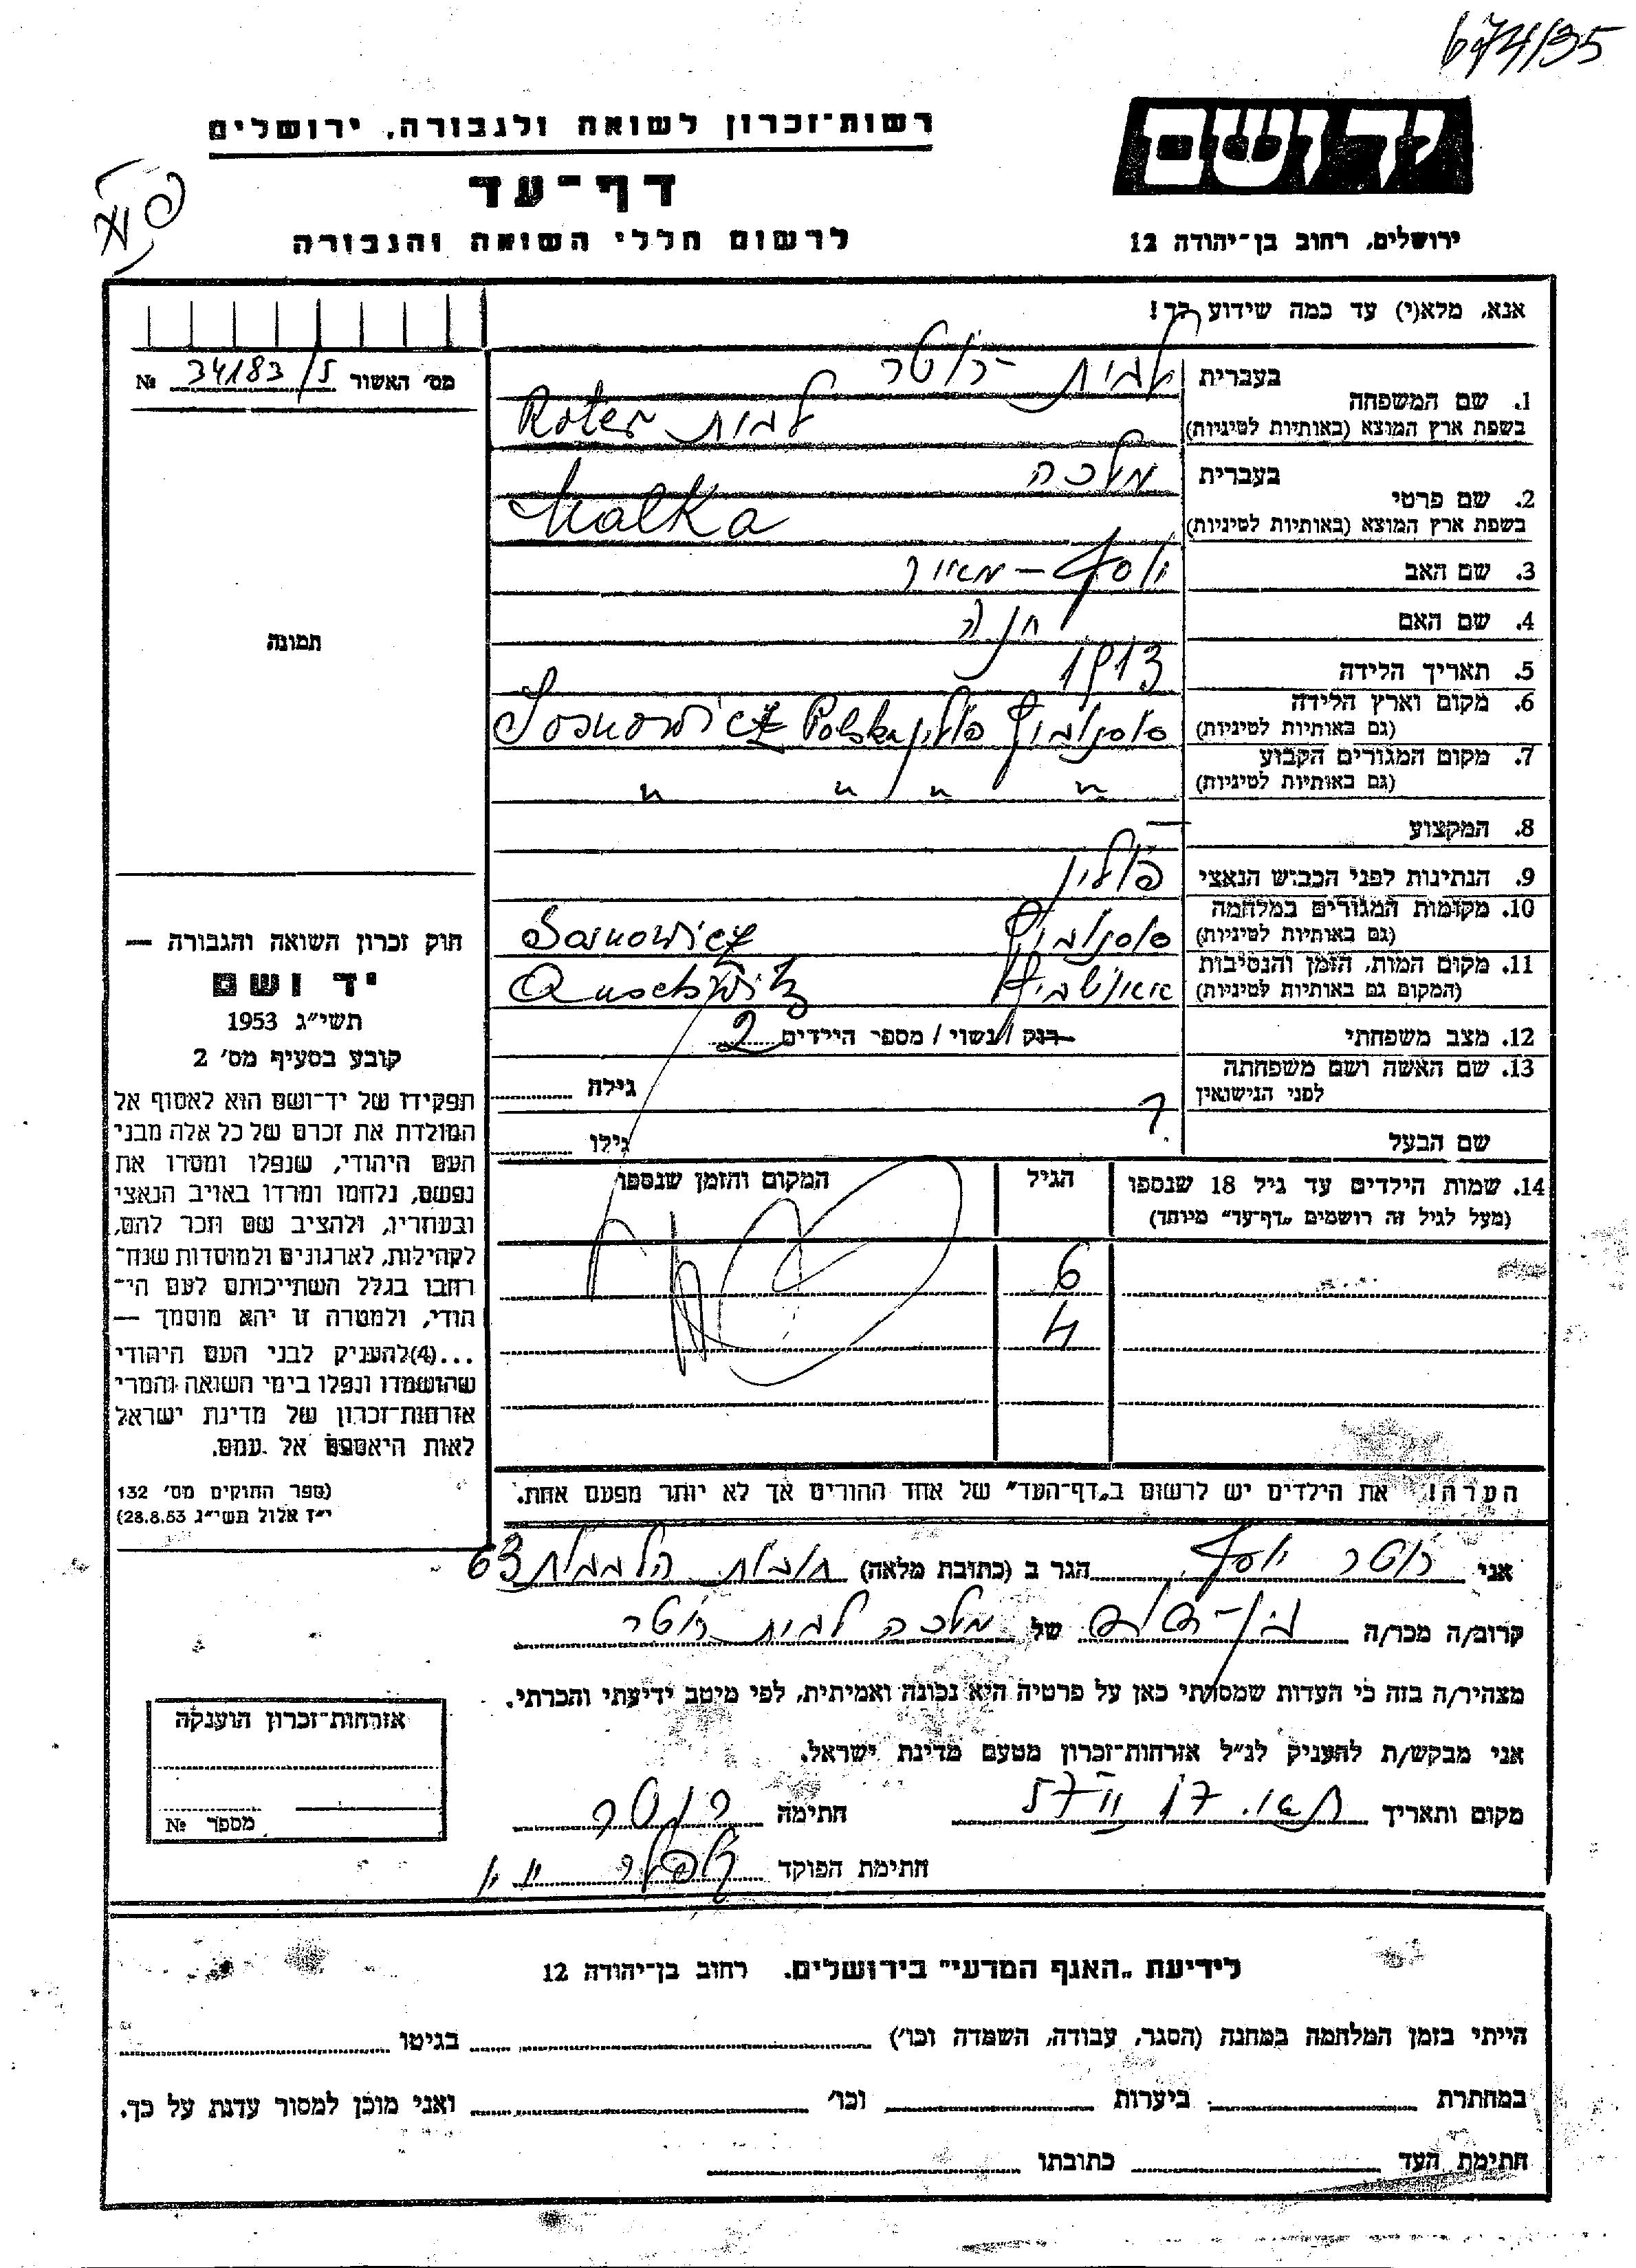 674/35
רשות־זכרון לשואה ולגבורה, ירושלים
יד ושם
דף־עד
לרשום חללי השואה והגבורה
ירושלים, רחוב בן־יהודה 12
אנא, מלא(י) עד כמה שידוע לך!
מס׳ האשור 34183/ №
1. שם המשפחה
בעברית לבית רוטר
בשפת ארץ המוצא (באותיות לטיניות) לבית Roter
2. שם פרטי
בעברית מלכה
בשפת ארץ המוצא (באותיות לטיניות) Malka
3. שם האב יוסף – מאיר
4. שם האם חנה
5. תאריך הלידה 1913
6. מקום וארץ הלידה
(גם באותיות לטיניות) סוסנוביץ פולין Polska Sosnowicz
7. מקום המגורים הקבוע
(גם באותיות לטיניות) " " " "
8. המקצוע —
9. הנתינות לפני הכבוש הנאצי פולין
10. מקומות המגורים במלחמה
(גם באותיות לטיניות) סוסנוביץ Sosnowicz
11. מקום המות, הזמן והנסיבות
(המקום גם באותיות לטיניות) אאושביץ Auschwitz
12. מצב משפחתי רווק / נשוי / מספר הילדים 2
13. שם האשה ושם משפחתה
לפני הנישואין גילה
?
שם הבעל גילו
14. שמות הילדים עד גיל 18 שנספו הגיל המקום והזמן שנספו
(מעל לגיל זה רושמים „דף־עד” מיוחד)
6
4
הערה! את הילדים יש לרשום ב„דף־העד” של אחד ההורים אך לא יותר מפעם אחת.
תמונה
חוק זכרון השואה והגבורה —
יד ושם
תשי״ג 1953
קובע בסעיף מס׳ 2
תפקידו של יד־ושם הוא לאסוף אל
המולדת את זכרם של כל אלה מבני
העם היהודי, שנפלו ומסרו את
נפשם, נלחמו ומרדו באויב הנאצי
ובעוזריו, ולהציב שם וזכר להם,
לקהילות, לארגונים ולמוסדות שנח־
רבו בגלל השתייכותם לעם הי־
הודי, ולמטרה זו יהא מוסמך —
...(4)להעניק לבני העם היהודי
שהושמדו ונפלו בימי השואה והמרי
אזרחות־זכרון של מדינת ישראל
לאות היאספם אל עמם.
(ספר החוקים מס׳ 132
י״ז אלול תשי״ג 28.8.53)
אני רוטר יוסף הגר ב (כתובת מלאה) חובות הלבבות 63
קרוב/ה מכר/ה של מלכה לבית רוטר
מצהיר/ה בזה כי העדות שמסרתי כאן על פרטיה היא נכונה ואמיתית, לפי מיטב ידיעתי והכרתי.
אני מבקש/ת להעניק לנ״ל אזרחות־זכרון מטעם מדינת ישראל.
מקום ותאריך חתימה רוטר
חתימת הפוקד
אזרחות־זכרון הוענקה
מספר №
לידיעת „האגף המדעי” בירושלים. רחוב בן־יהודה 12
הייתי בזמן המלחמה במחנה (הסגר, עבודה, השמדה וכו׳) בגיטו
במחתרת ביערות וכו׳ ואני מוכן למסור עדות על כך.
חתימת העד כתובתו